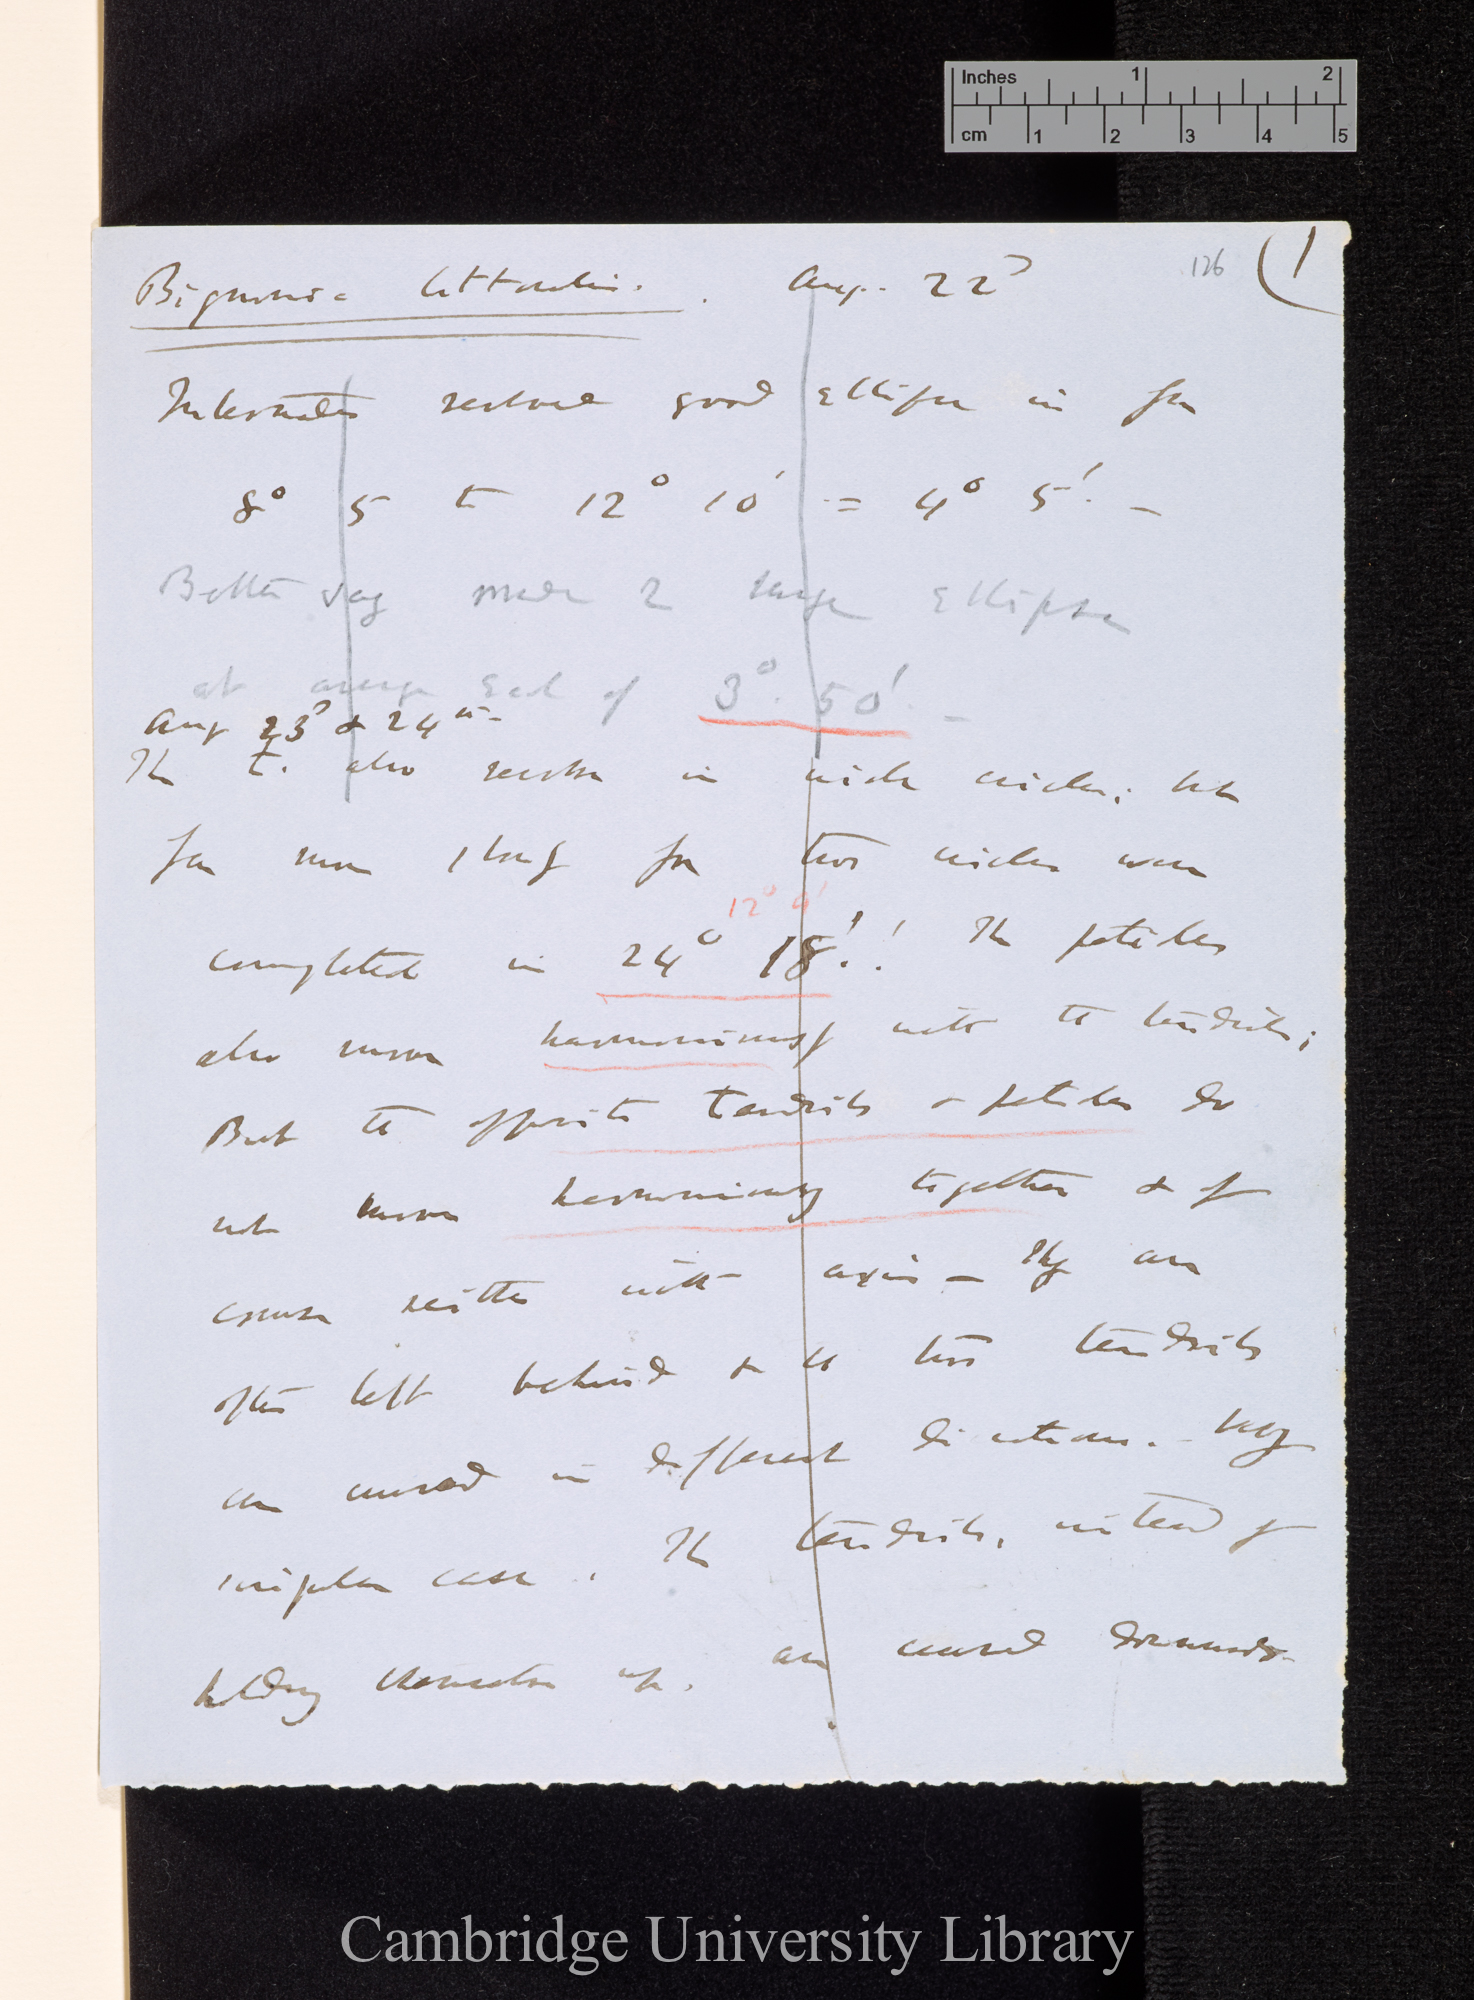 Inches 1 2
cm 1 2 3 4 5
126 (1
Bignonia littoralis. Aug. 22d
Internodes revolved good ellipse in from
8° 5 to 12° 10' = 4° 5'. —
Better say made 2 large ellipses
at average each of 3°. 50'. —
Aug 23d & 24th —
The t. also revolve in wide circles; but
far more slowly for two circles were
12° 9'
completed in 24° 18'!! The petioles
also move harmoniously with the tendrils;
But the opposite tendrils & petioles do
not move harmoniously together & of
course neither with axis — They are
often left behind & the two tendrils
are curved in different directions. — Very
singular case. The tendrils, instead of
holding themselves up, are curved downwards
Cambridge University Library